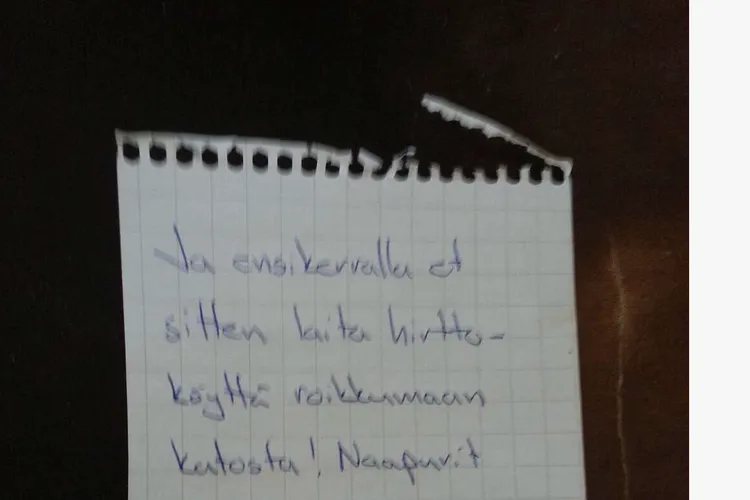 Ja ensikerralla et
sitten laita hirtto-
köyttä roikkumaan
katosta! Naapurit